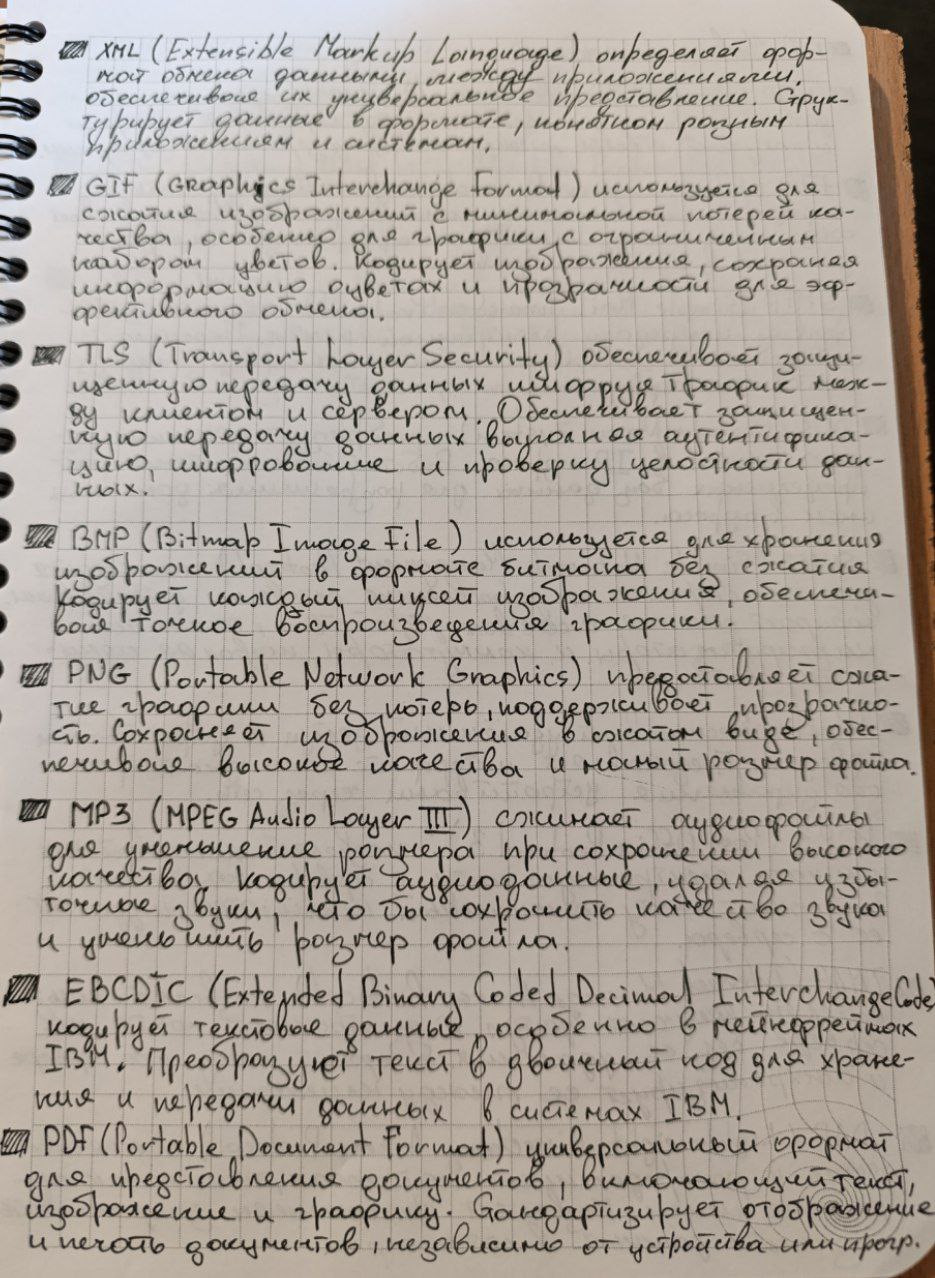 XML (Extensible Markup Language) определяет фор-
мат обмена данными между приложениями,
обеспечивая их универсальное представление. Струк-
турирует данные в формате, понятном разным
приложениям и системам.
GIF (Graphics Interchange Format) используется для
сжатия изображений с минимальной потерей ка-
чества, особенно для графики с ограниченным
набором цветов. Кодирует изображения, сохраняя
информацию о цветах и прозрачности для эф-
фективного обмена.
TLS (Transport Layer Security) обеспечивает защи-
щенную передачу данных шифруя трафик меж-
ду клиентом и сервером. Обеспечивает защищен-
ную передачу данных выполняя аутентифика-
цию, шифрование и проверку целостности дан-
ных.
BMP (Bitmap Image File) используется для хранения
изображений в формате битмапа без сжатия
Кодирует каждый пиксел изображения, обеспечи-
вая точное воспроизведения графики.
PNG (Portable Network Graphics) предоставляет сжа-
тие графики без потерь, поддерживает прозрачно-
сть. Сохраняет изображения в сжатом виде, обес-
печивая высокое качества и малый размер файла.
MP3 (MPEG Audio Layer III) сжимает аудиофайлы
для уменьшение размера при сохранении высокого
качества. Кодирует аудиоданные, удаляя избы-
точные звуки, что бы сохранить качество звука
и уменьшить размер файла.
EBCDIC (Extended Binary Coded Decimal Interchange Code)
кодирует текстовые данные, особенно в мейнфреймах
IBM. Преобразует текст в двоичный код для хране-
ния и передачи данных в системах IBM.
PDF (Portable Document Format) универсальный формат
для представления документов, включающий текст,
изображение и графику. Стандартизирует отображение
и печать документов, независимо от устройства или прогр.